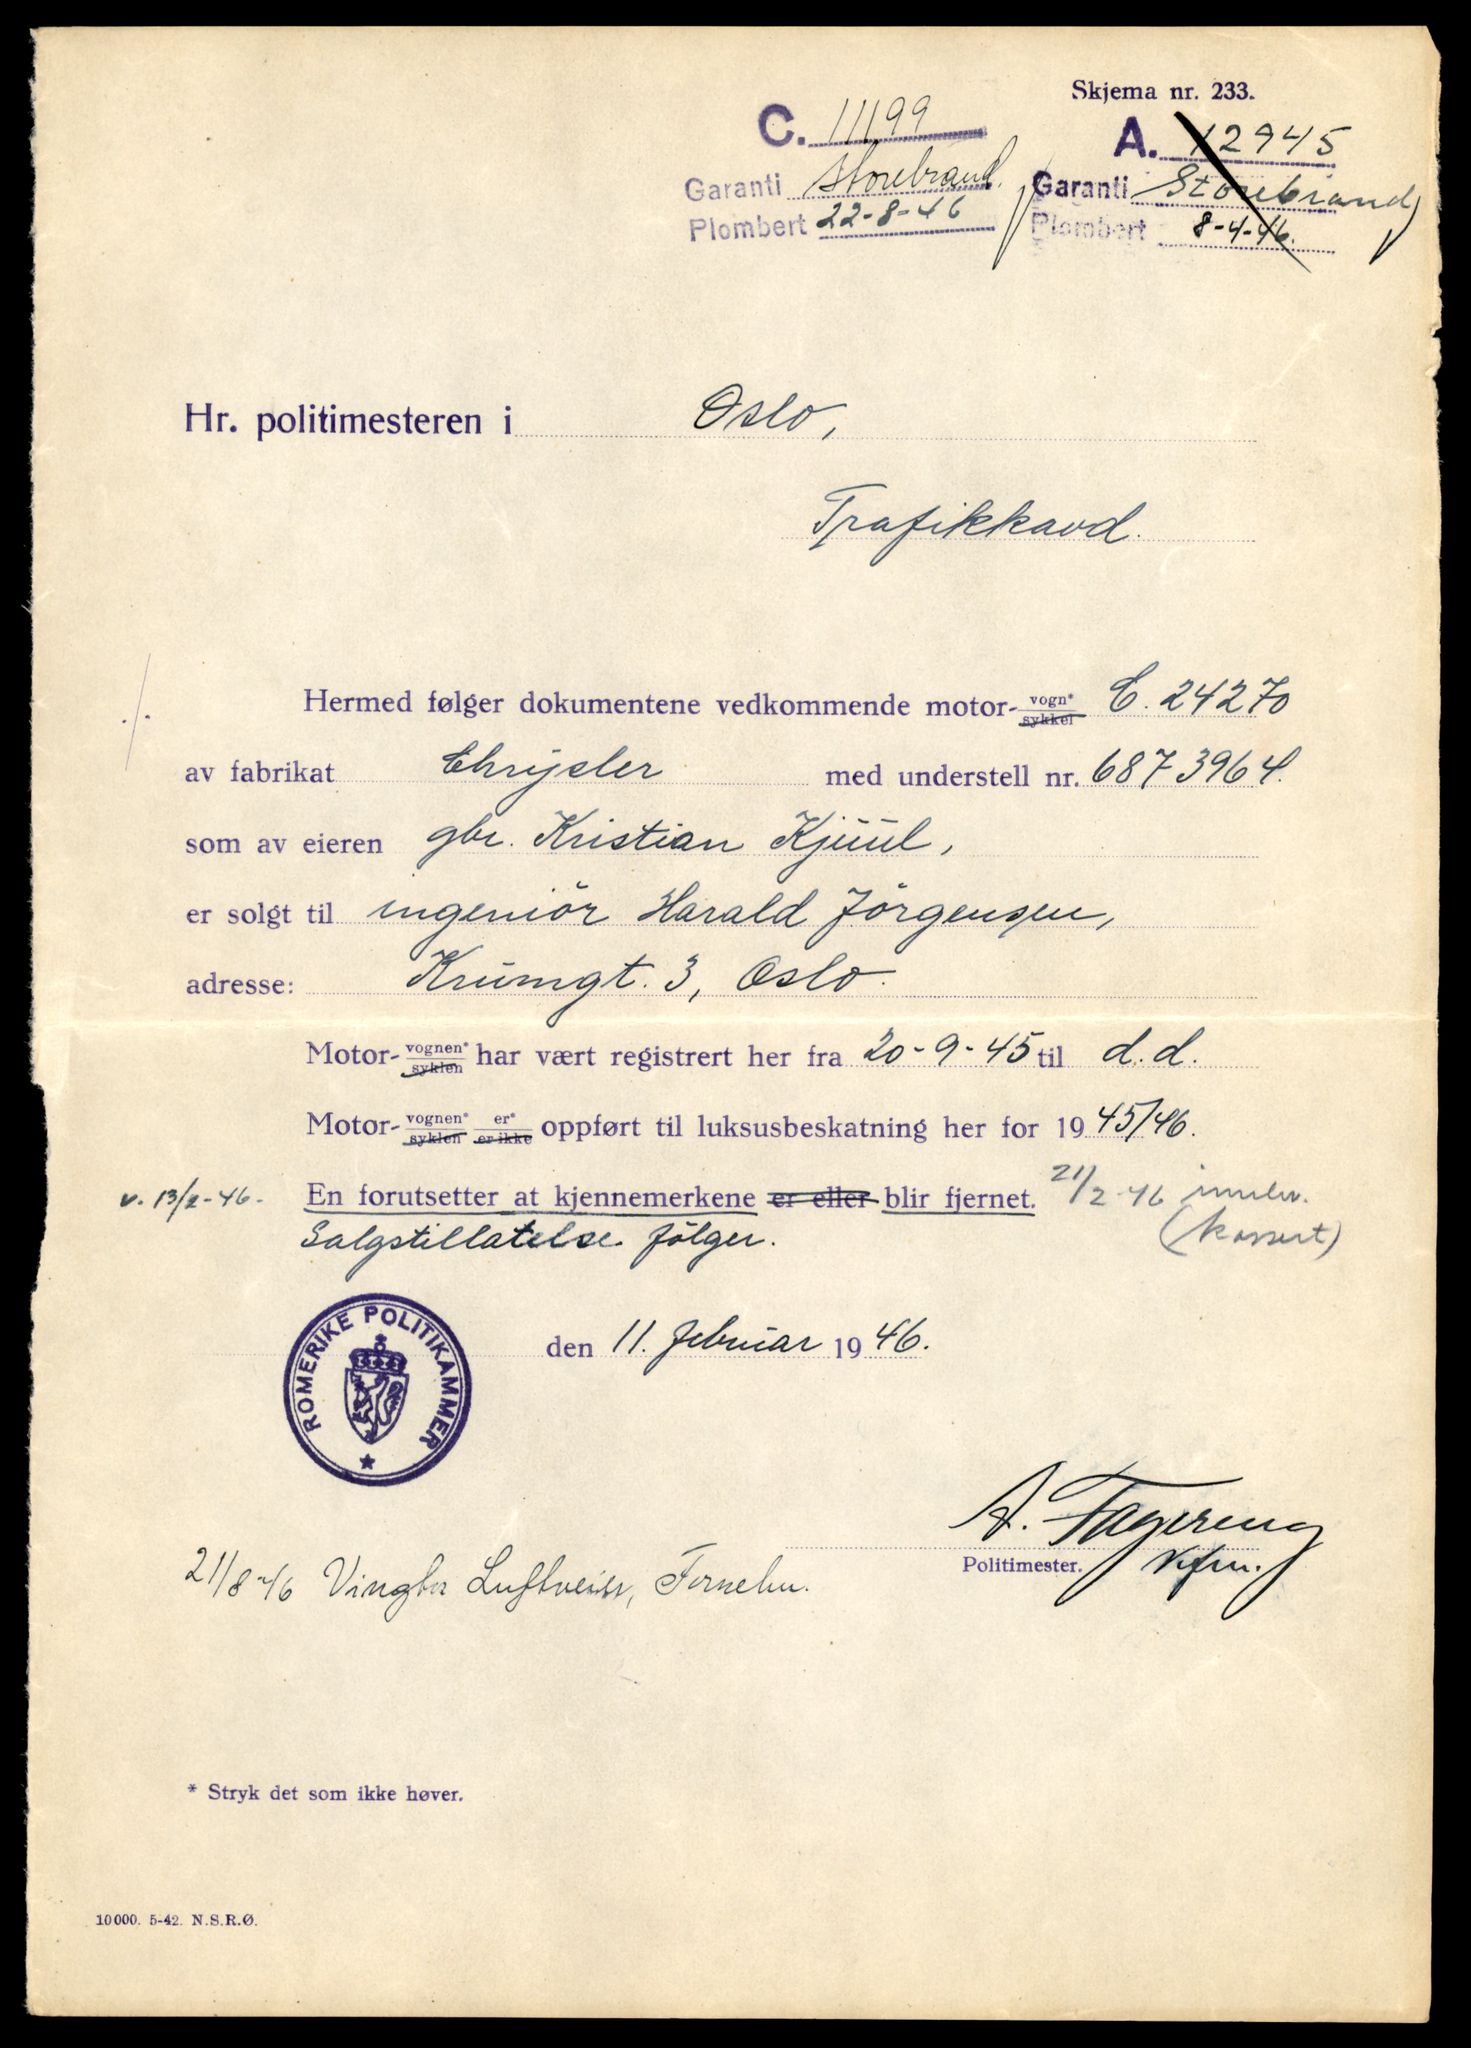 Skjema nr. 233.
C. 11199
Garanti Storebrand.
Plombert 22-8-46
A. 12945
Garanti Storebrand
Plombert 8-4-46.
Hr. politimesteren i Oslo,
Trafikkavd.
Hermed følger dokumentene vedkommende motor- vogn* sykkel C. 24270
./.
av fabrikat Chrysler med understell nr. 6873964.
som av eieren gbr. Kristian Kjuul,
er solgt til ingeniör Harald Jörgensen,
adresse: Krumgt. 3, Oslo.
Motor- vognen* syklen har vært registrert her fra 20-9-45 til d.d.
Motor- vognen* syklen er* er ikke oppført til luksusbeskatning her for 1945/46.
v. 13/2-46. En forutsetter at kjennemerkene er eller blir fjernet. 21/2-46 innlev.
Salgstillatelse følger. (kassert)
ROMERIKE POLITIKAMMER
den 11. februar 1946.
A. Fagereng
Politimester.
21/8-46 Vingtor Luftveier, Fornebu.
* Stryk det som ikke høver.
10000. 5-42. N.S.R.Ø.